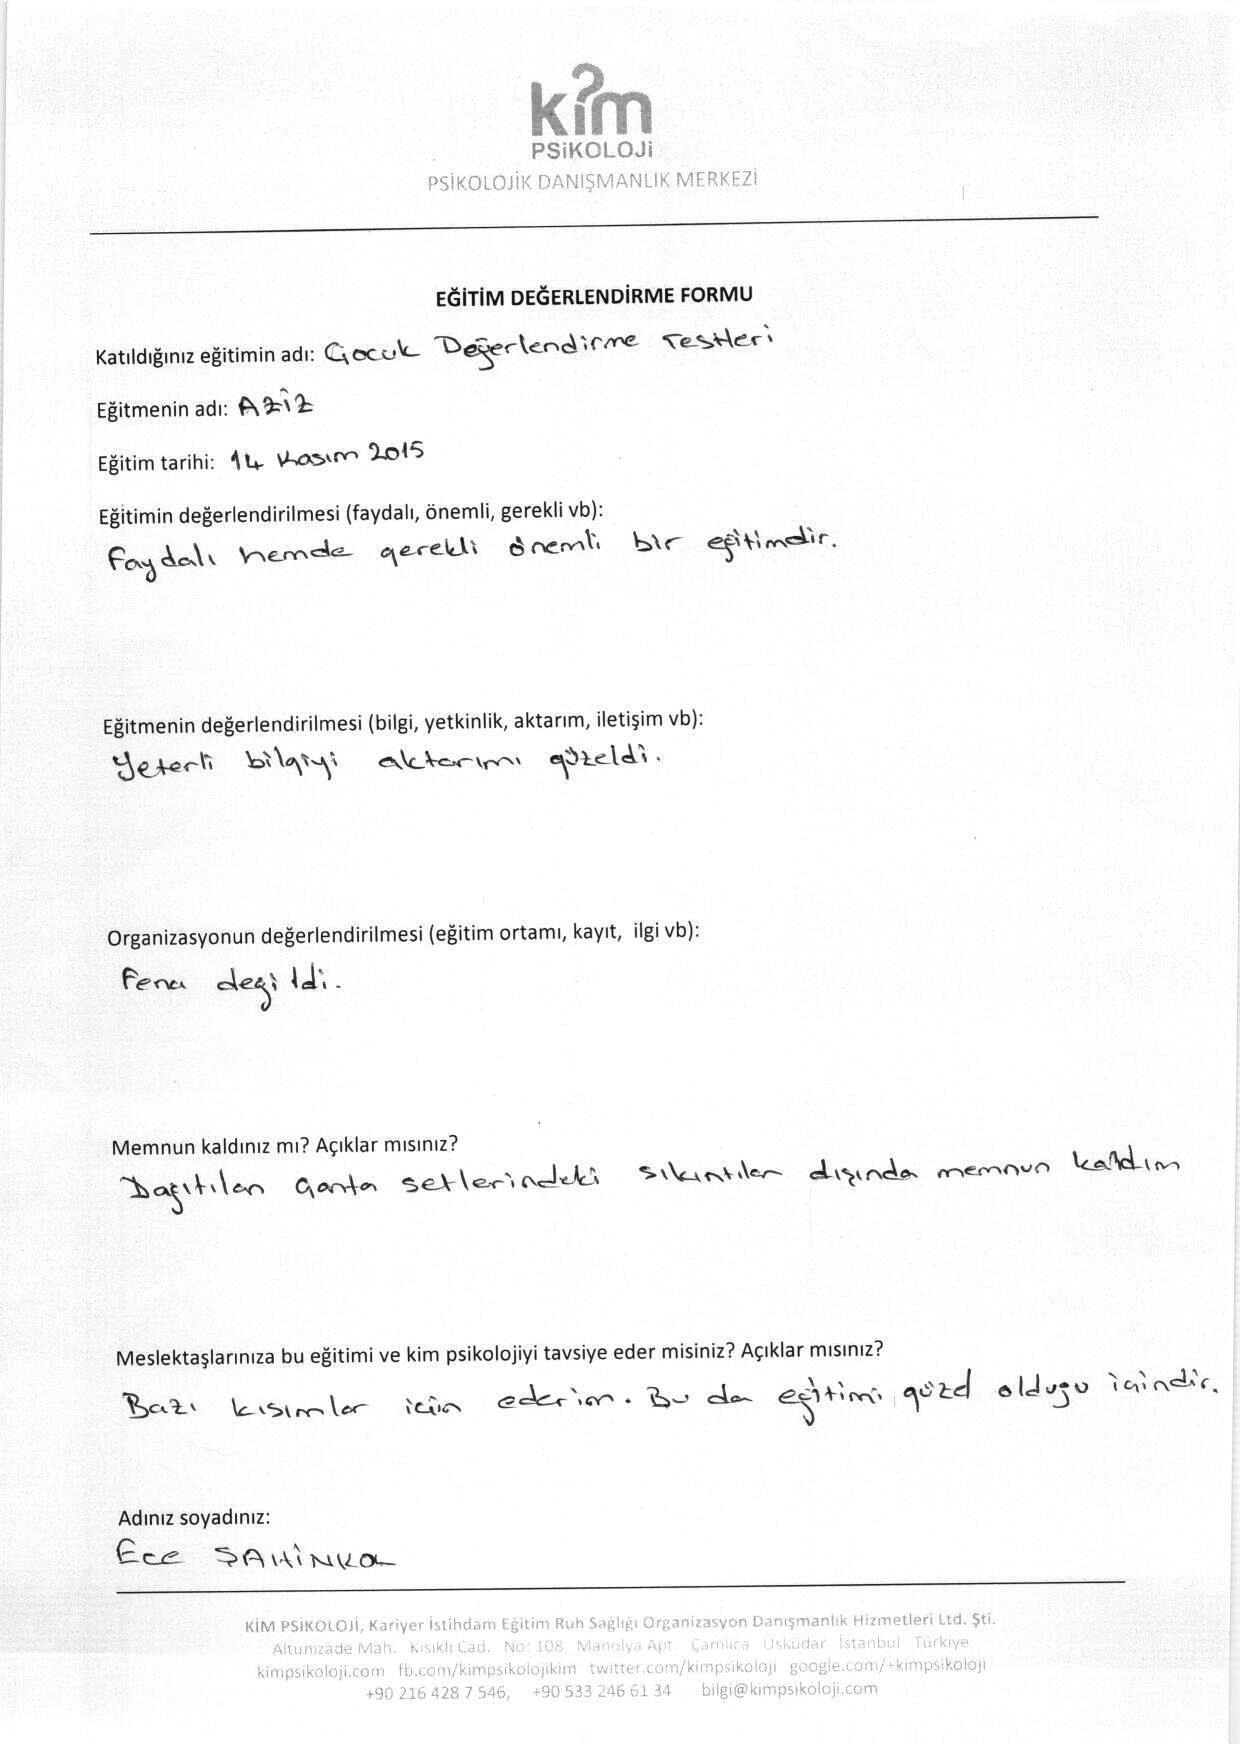 kim
PSiKOLOJi
PSİKOLOJİK DANIŞMANLIK MERKEZİ
EĞİTİM DEĞERLENDİRME FORMU
Katıldığınız eğitimin adı: Çocuk Değerlendirme Testleri
Eğitmenin adı: AZİZ
Eğitim tarihi: 14 Kasım 2015
Eğitimin değerlendirilmesi (faydalı, önemli, gerekli vb):
Faydalı hemde gerekli önemli bir eğitimdir.
Eğitmenin değerlendirilmesi (bilgi, yetkinlik, aktarım, iletişim vb):
Yeterli bilgiyi aktarımı güzeldi.
Organizasyonun değerlendirilmesi (eğitim ortamı, kayıt, ilgi vb):
Fena değildi.
Memnun kaldınız mı? Açıklar mısınız?
Dağıtılan çanta setlerindeki sıkıntılar dışında memnun kaldım
Meslektaşlarınıza bu eğitimi ve kim psikolojiyi tavsiye eder misiniz? Açıklar mısınız?
Bazı kısımlar için ederim. Bu da eğitimi güzel olduğu içindir.
Adınız soyadınız:
Ece ŞAHİNKOL
KİM PSİKOLOJİ, Kariyer İstihdam Eğitim Ruh Sağlığı Organizasyon Danışmanlık Hizmetleri Ltd. Şti.
Altunizade Mah. Kısıklı Cad. No: 108 Manolya Apt. Çamlıca Üsküdar İstanbul Türkiye
kimpsikoloji.com fb.com/kimpsikolojikim twitter.com/kimpsikoloji google.com/+kimpsikoloji
+90 216 428 7 546, +90 533 246 61 34 bilgi@kimpsikoloji.com